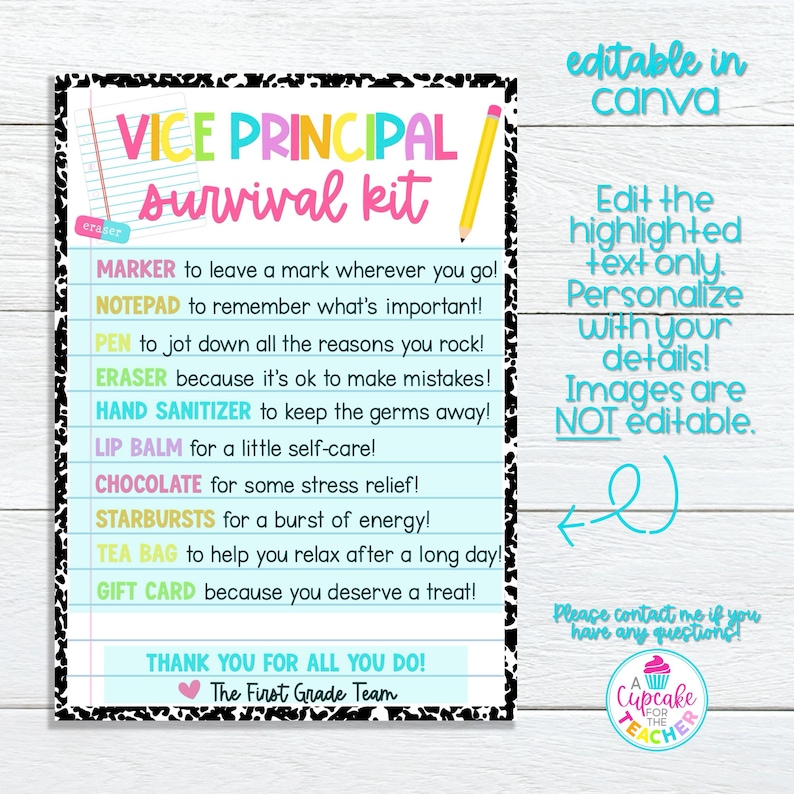 VICE PRINCIPAL
survival kit
eraser
MARKER to leave a mark wherever you go!
NOTEPAD to remember what's important!
PEN to jot down all the reasons you rock!
ERASER because it's ok to make mistakes!
HAND SANITIZER to keep the germs away!
LIP BALM for a little self-care!
CHOCOLATE for some stress relief!
STARBURSTS for a burst of energy!
TEA BAG to help you relax after a long day!
GIFT CARD because you deserve a treat!
THANK YOU FOR ALL YOU DO!
The First Grade Team
editable in
canva
Edit the
highlighted
text only.
Personalize
with your
details!
Images are
NOT editable.
Please contact me if you
have any questions!
A
Cupcake
FOR THE
TEACHER